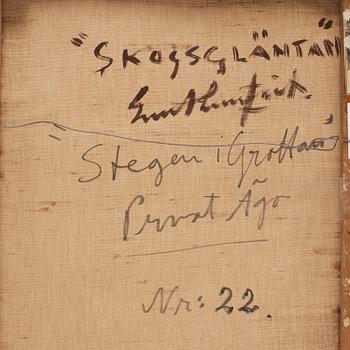 "SKOGSGLÄNTAN"
"Stegen i Grottan"
Privat Ägo
Nr: 22.